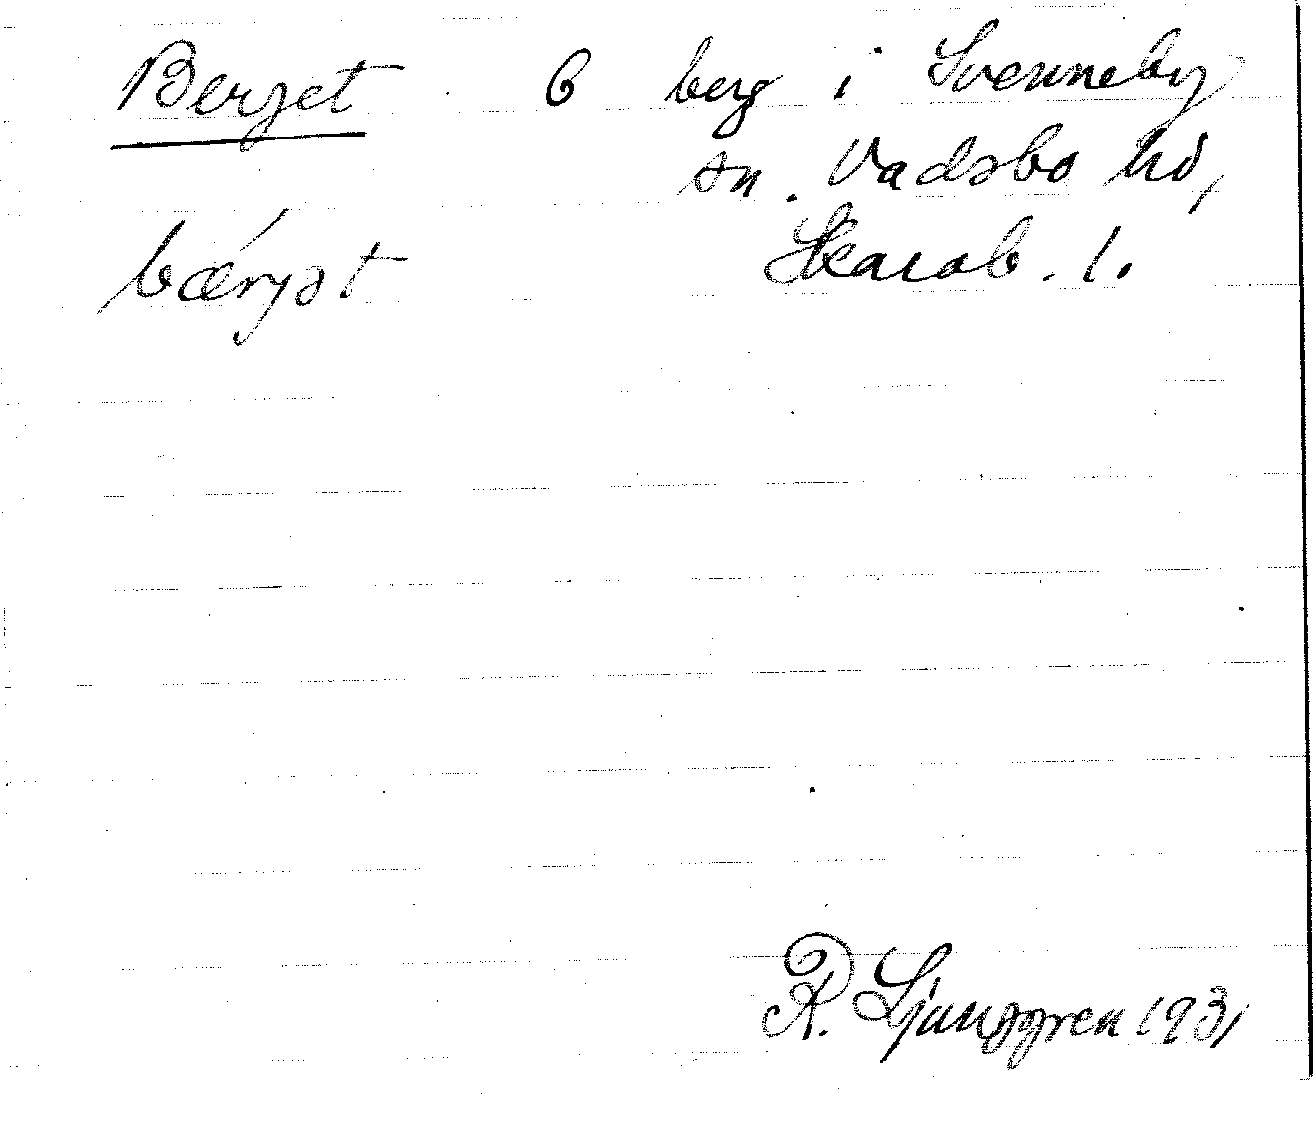 Berget 6 berg i Svenneby
sn. Vadsbo hd,
bǽryət Skarab. l.
R. Ljunggren 1931